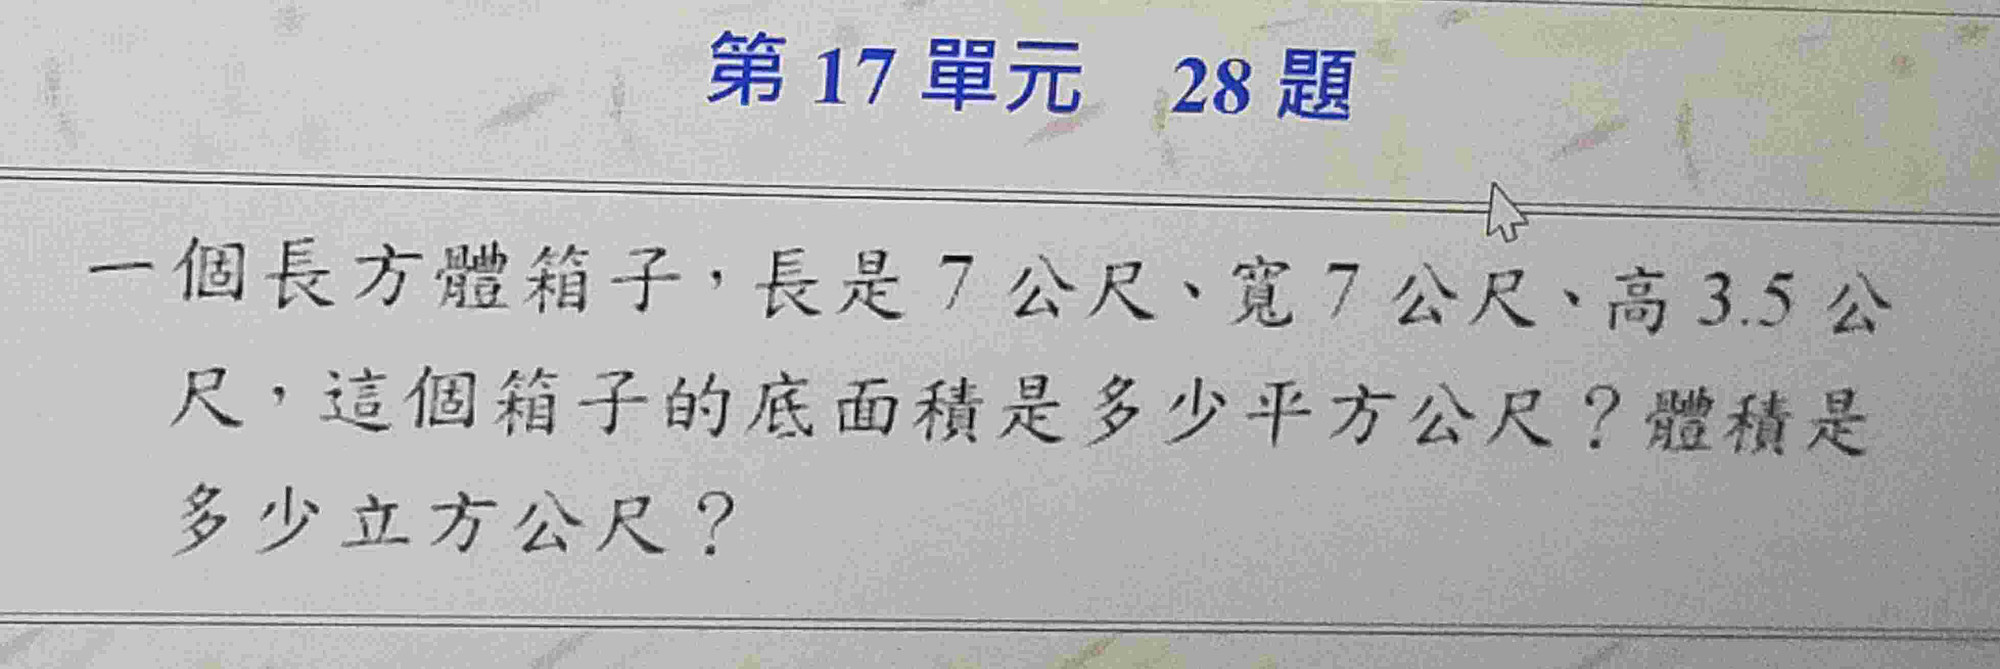 第 17 單元 28 題
一個長方體箱子，長是 7 公尺、寬 7 公尺、高 3.5 公
尺，這個箱子的底面積是多少平方公尺？體積是
多少立方公尺？